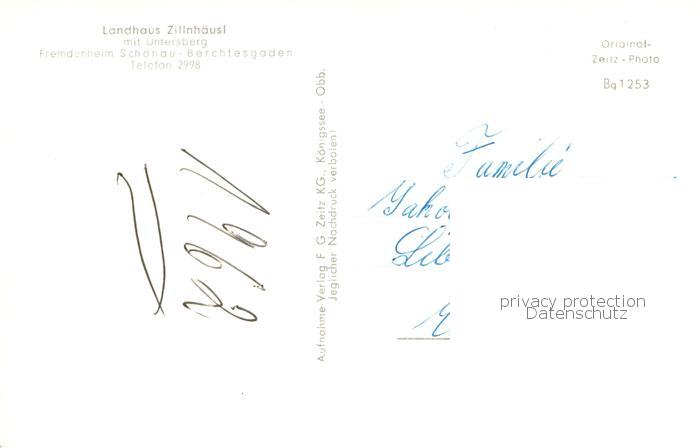 Landhaus Zillnhäusl
mit Untersberg
Fremdenheim Schönau-Berchtesgaden
Telefon 2998
Aufnahme Verlag F. G. Zeitz KG., Königssee - Obb.
Jeglicher Nachdruck verboten!
Original-
Zeitz-Photo
Bg 1253
Familie
privacy protection
Datenschutz